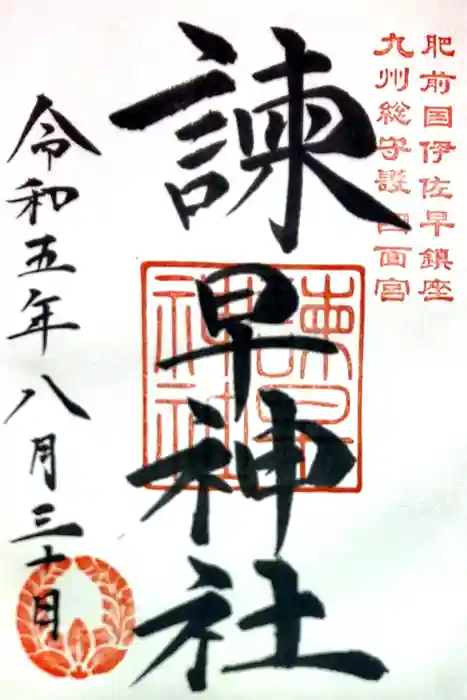 肥前国伊佐早鎮座
九州総守護四面宮
諫早神社
諫早
神社
令和五年八月三十日